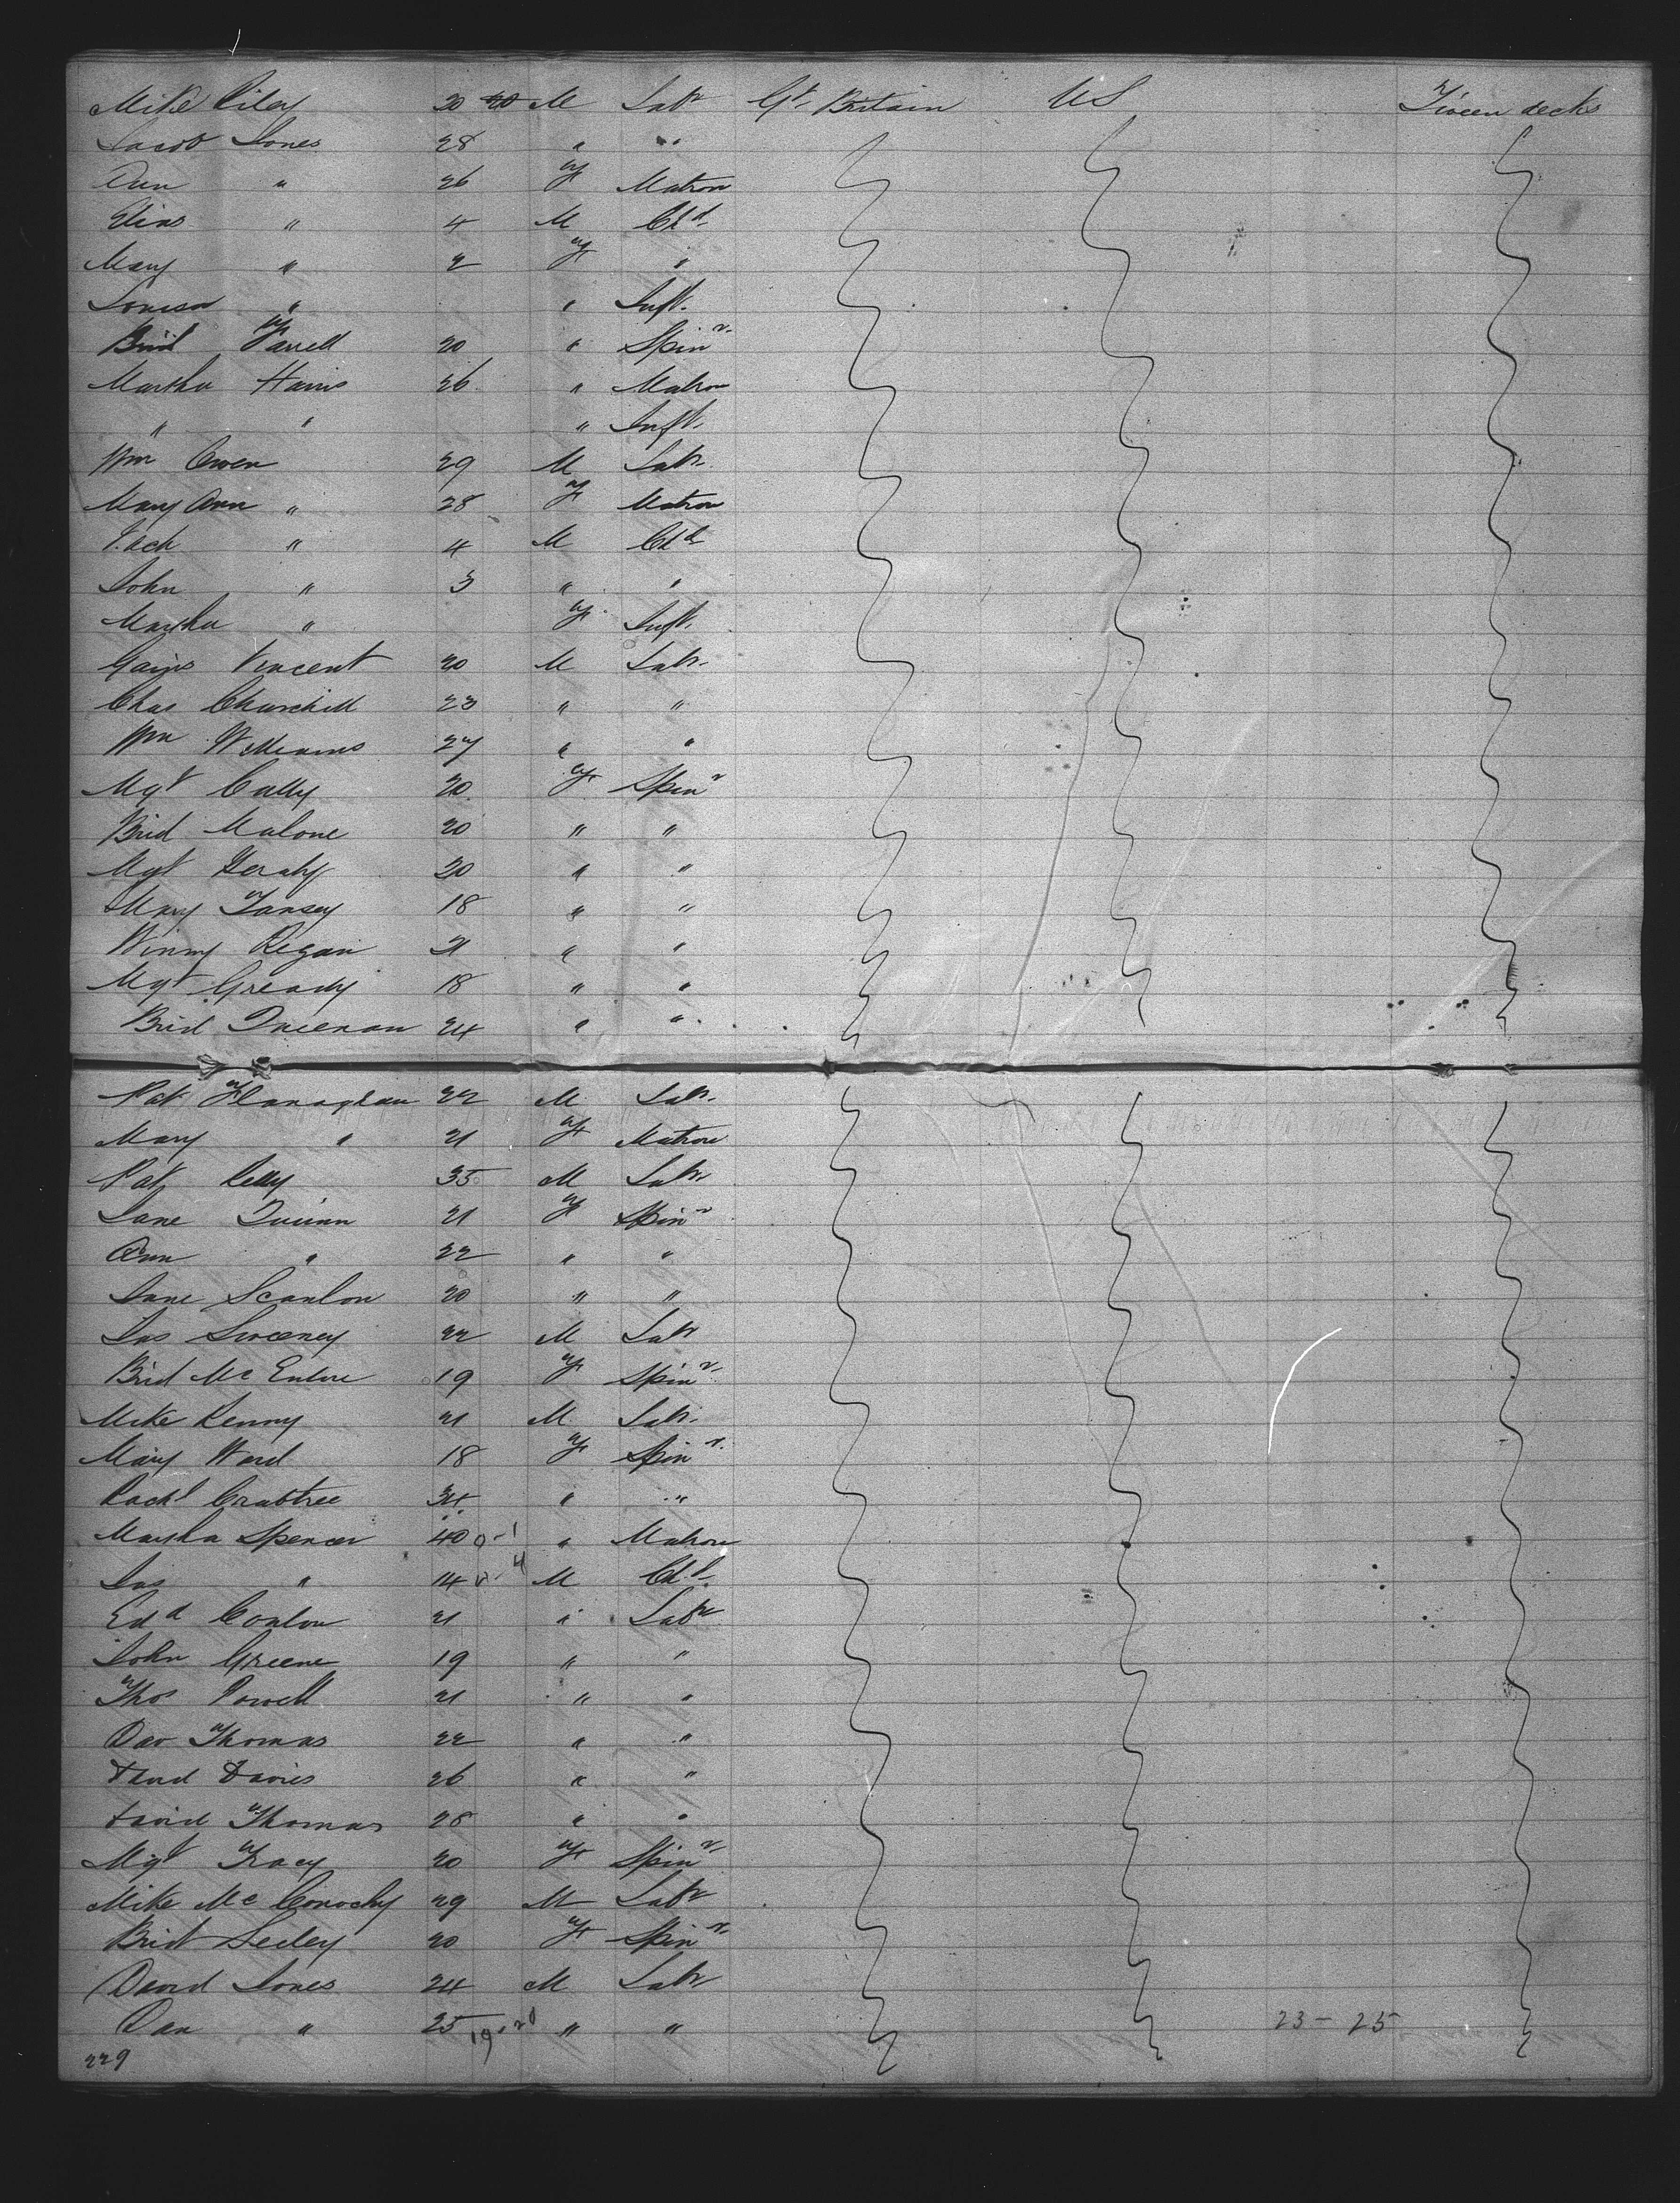 Mike Riley 20 20 M Labr Gt Britain US Tween decks
Jacob Jones 28 " "
Ann " 26 F Matron
Elias " 4 M Chd
Mary " 2 F "
Louisa " " Inft.
Brid Farrell 20 " Spinr
Martha Harris 26 " Matron
" " " Inft.
Wm Owen 29 M Labr
Mary Ann " 28 F Matron
" 4 M Chd
John " 3 " "
Martha " F Inft.
Vincent 20 M Labr
Chas Churchill 23 " "
Wm Williams 27 " "
Mgt Cally 20 F Spinr
Brid Malone 20 " "
Mgt Geraty 20 " "
Mary Tansey 18 " "
Winny Regan 21 " "
Mgt Gready 18 " "
Brid 24 " "
Pat Flanaghan 22 M Labr
Mary " 21 F Matron
Pat Kelly 35 M Labr
Jane Quinn 21 F Spinr
Ann " 22 " "
Jane Scanlon 20 " "
Jas Sweeney 22 M Labr
Brid Mc 19 F Spinr
Mike Kenny 21 M Labr
Mary Ward 18 F Spinr
Rachl Crabtree 34 " "
Martha Spencer 40 " Matron
Jas " 14 M Chd
Edd Conlon 21 " Labr
John Greene 19 " "
Thos Powell 21 " "
Dav Thomas 22 " "
Davies 26 " "
David Thomas 28 " "
Mgt Tracy 20 F Spinr
Mike Mc Conochy 29 M Labr
Brid Seeley 20 F Spinr
David Jones 24 M Labr
Dan " 25 " " 23 - 25
229